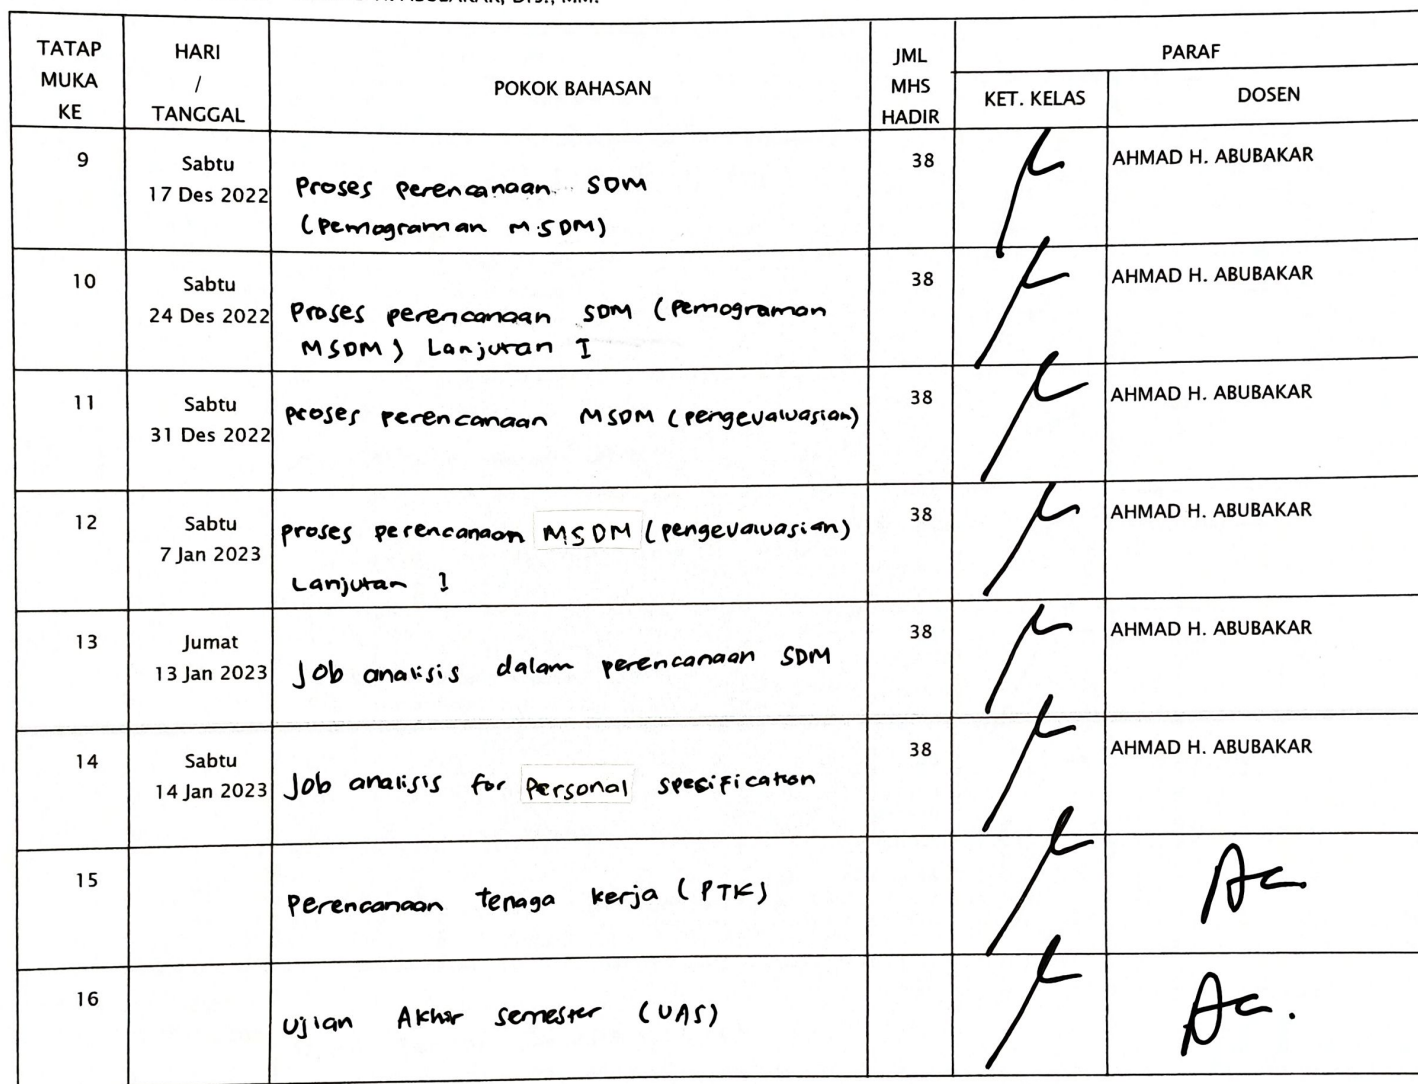 TATAP
MUKA
KE
HARI
/
TANGGAL
POKOK BAHASAN
JML
MHS
HADIR
PARAF
KET. KELAS
DOSEN
9
Sabtu
17 Des 2022
Proses perencanaan SDM
(Pemograman MSDM)
38
AHMAD H. ABUBAKAR
10
Sabtu
24 Des 2022
Proses perencanaan SDM (Pemograman
MSDM) Lanjutan I
38
AHMAD H. ABUBAKAR
11
Sabtu
31 Des 2022
proses perencanaan MSDM (pengevaluasian)
38
AHMAD H. ABUBAKAR
12
Sabtu
7 Jan 2023
proses perencanaan MSDM (pengevaluasian)
Lanjutan I
38
AHMAD H. ABUBAKAR
13
Jumat
13 Jan 2023
Job analisis dalam perencanaan SDM
38
AHMAD H. ABUBAKAR
14
Sabtu
14 Jan 2023
Job analisis for Personal specification
38
AHMAD H. ABUBAKAR
15
Perencanaan tenaga kerja (PTK)
16
Ujian Akhir semester (UAS)